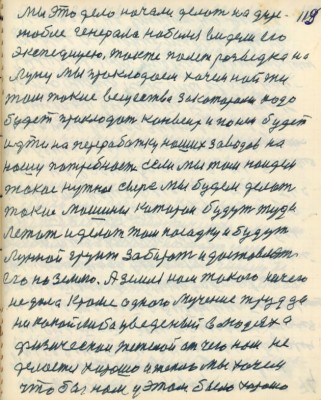 119
мы это дело начали делат на
генерала Нобиля видем его
экспедицею, также полет розведка на
Луну мы прокладоем хочем най ти
там такие вещества за которами надо
будет прокладат конвеир и после будет
идти на переработку нашых заводов на
нашу потребност если мы там найдем
такое нужное сыре мы будем делат
такие машины каторыи будут туда
летат и делат там посадку и будут
лунной грунт забират и доставлят
его на землю. А земля нам такого нечего
не дала кроме одного мучение труда
ни какой либа уведеный в людях а
физическии тяжолой от чего нам не
делаеса хорошо и мы хочем
что бы нам у этом было хорошо